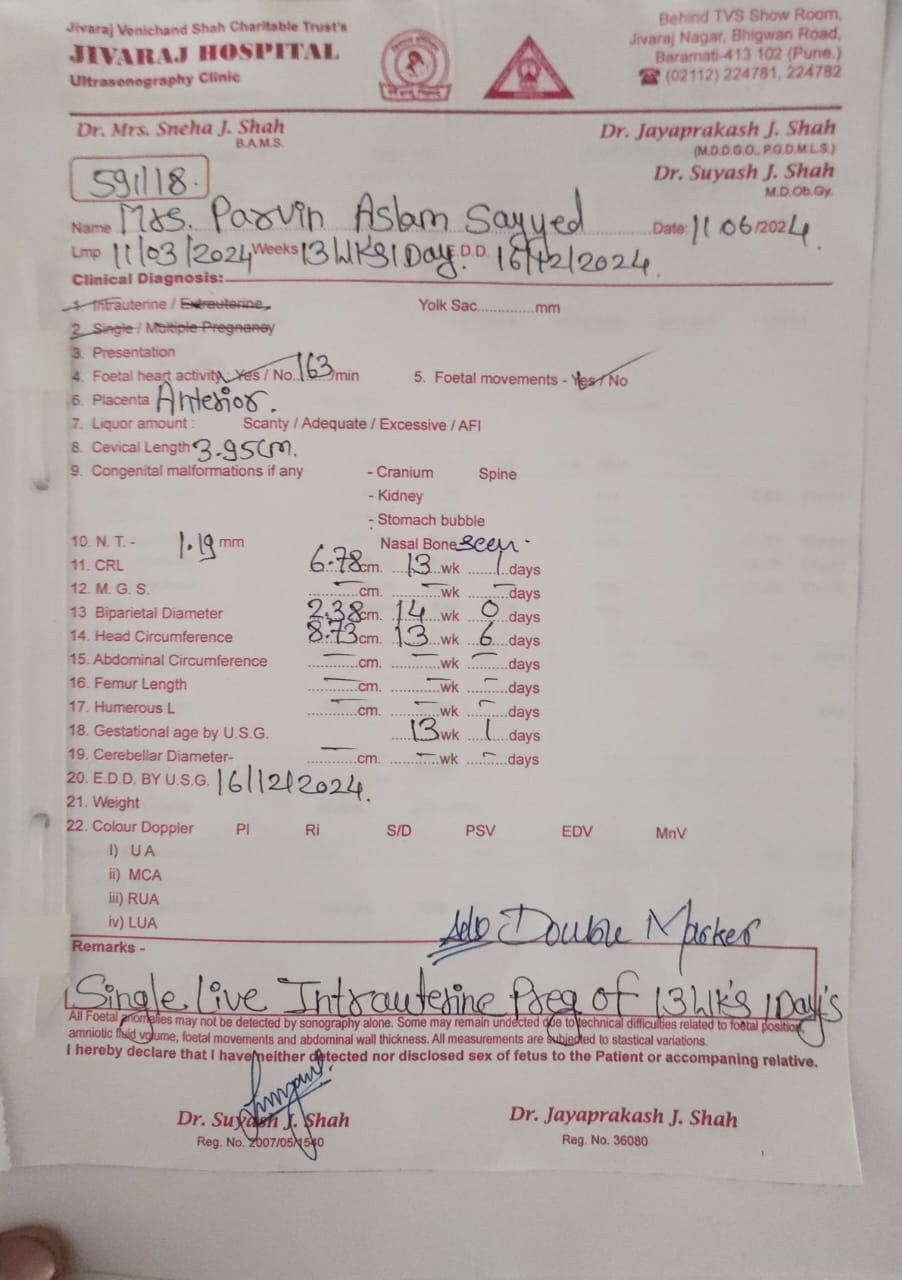 Jivaraj Venichand Shah Charitable Trust's
JIVARAJ HOSPITAL
Ultrasonography Clinic
Behind TVS Show Room,
Jivaraj Nagar, Bhigwan Road,
Baramati-413 102 (Pune.)
☎ (02112) 224781, 224782
Dr. Mrs. Sneha J. Shah
B.A.M.S.
Dr. Jayaprakash J. Shah
(M.D.D.G.O., P.G.D.M.L.S.)
Dr. Suyash J. Shah
M.D.Ob.Gy.
591/18.
Name Mrs. Parvin Aslam Sayyed Date: 11 06/2024
Lmp 11/03/2024 Weeks 13 WKS 1 Day. E.D.D. 16/12/2024.
Clinical Diagnosis:-
1. Intrauterine / Extrauterine, Yolk Sac..............mm
2. Single / Multiple Pregnancy
3. Presentation
4. Foetal heart activity Yes / No. 163/min 5. Foetal movements - Yes / No
6. Placenta Anterior.
7. Liquor amount : Scanty / Adequate / Excessive / AFI
8. Cevical Length 3.95cm.
9. Congenital malformations if any - Cranium Spine
- Kidney
- Stomach bubble
10. N. T. - 1.19 mm Nasal Bone seen.
11. CRL 6.78 cm. 13 wk 1 days
12. M. G. S. — cm. — wk — days
13 Biparietal Diameter 2.38 cm. 14 wk 0 days
14. Head Circumference 8.73 cm. 13 wk 6 days
15. Abdominal Circumference — cm. — wk — days
16. Femur Length — cm. — wk — days
17. Humerous L — cm. — wk — days
18. Gestational age by U.S.G. 13 wk 1 days
19. Cerebellar Diameter- — cm. — wk — days
20. E.D.D. BY U.S.G. 16/12/2024.
21. Weight
22. Colour Doppler PI Ri S/D PSV EDV MnV
I) U A
ii) MCA
iii) RUA
iv) LUA
Double Marker
Remarks -
Single Live Intrauterine Preg of 13 WK's 1 Day's
All Foetal anomalies may not be detected by sonography alone. Some may remain undected due to technical difficulties related to foetal position,
amniotic fluid volume, foetal movements and abdominal wall thickness. All measurements are subjected to stastical variations.
I hereby declare that I have neither detected nor disclosed sex of fetus to the Patient or accompaning relative.
Dr. Suyash J. Shah
Reg. No. 2007/05/1540
Dr. Jayaprakash J. Shah
Reg. No. 36080